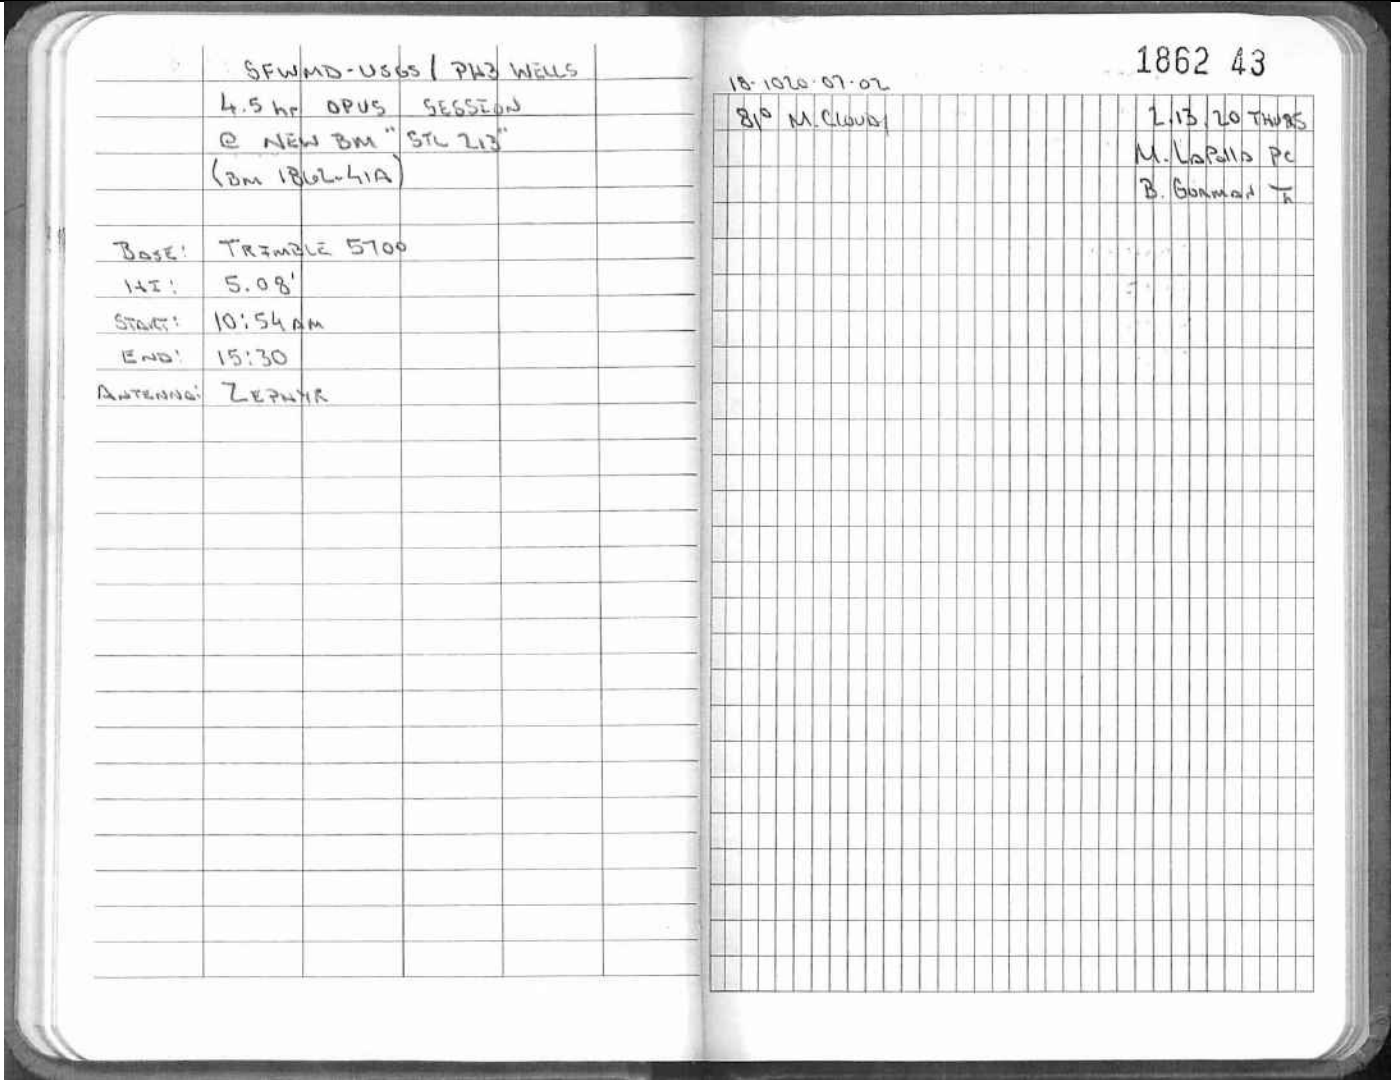 SFWMD-USGS / PH3 WELLS
4.5 hr OPUS SESSION
@ NEW BM "STL 213"
(BM 1862-41A)
BASE: TRIMBLE 5700
HI: 5.08'
START: 10:54 AM
END: 15:30
ANTENNA: ZEPHYR
1862 43
18-1020-07-02
81° M. CLOUDY 2.13.20 THURS
M. LaPolla PC
B. GORMAN